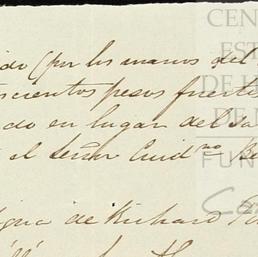 ido (por los manos del
scientos pesos fuerte
do en lugar del sa
el Señor Ciud.no Be
igna de Richard Po
CEN
EST
DE H
DE
FUN
Ca